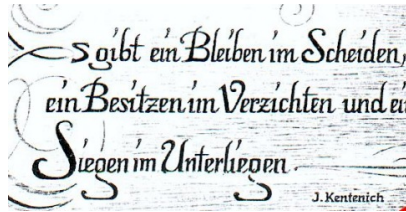 Es gibt ein Bleiben im Scheiden,
ein Besitzen im Verzichten und ei
Siegen im Unterliegen.
J. Kentenich